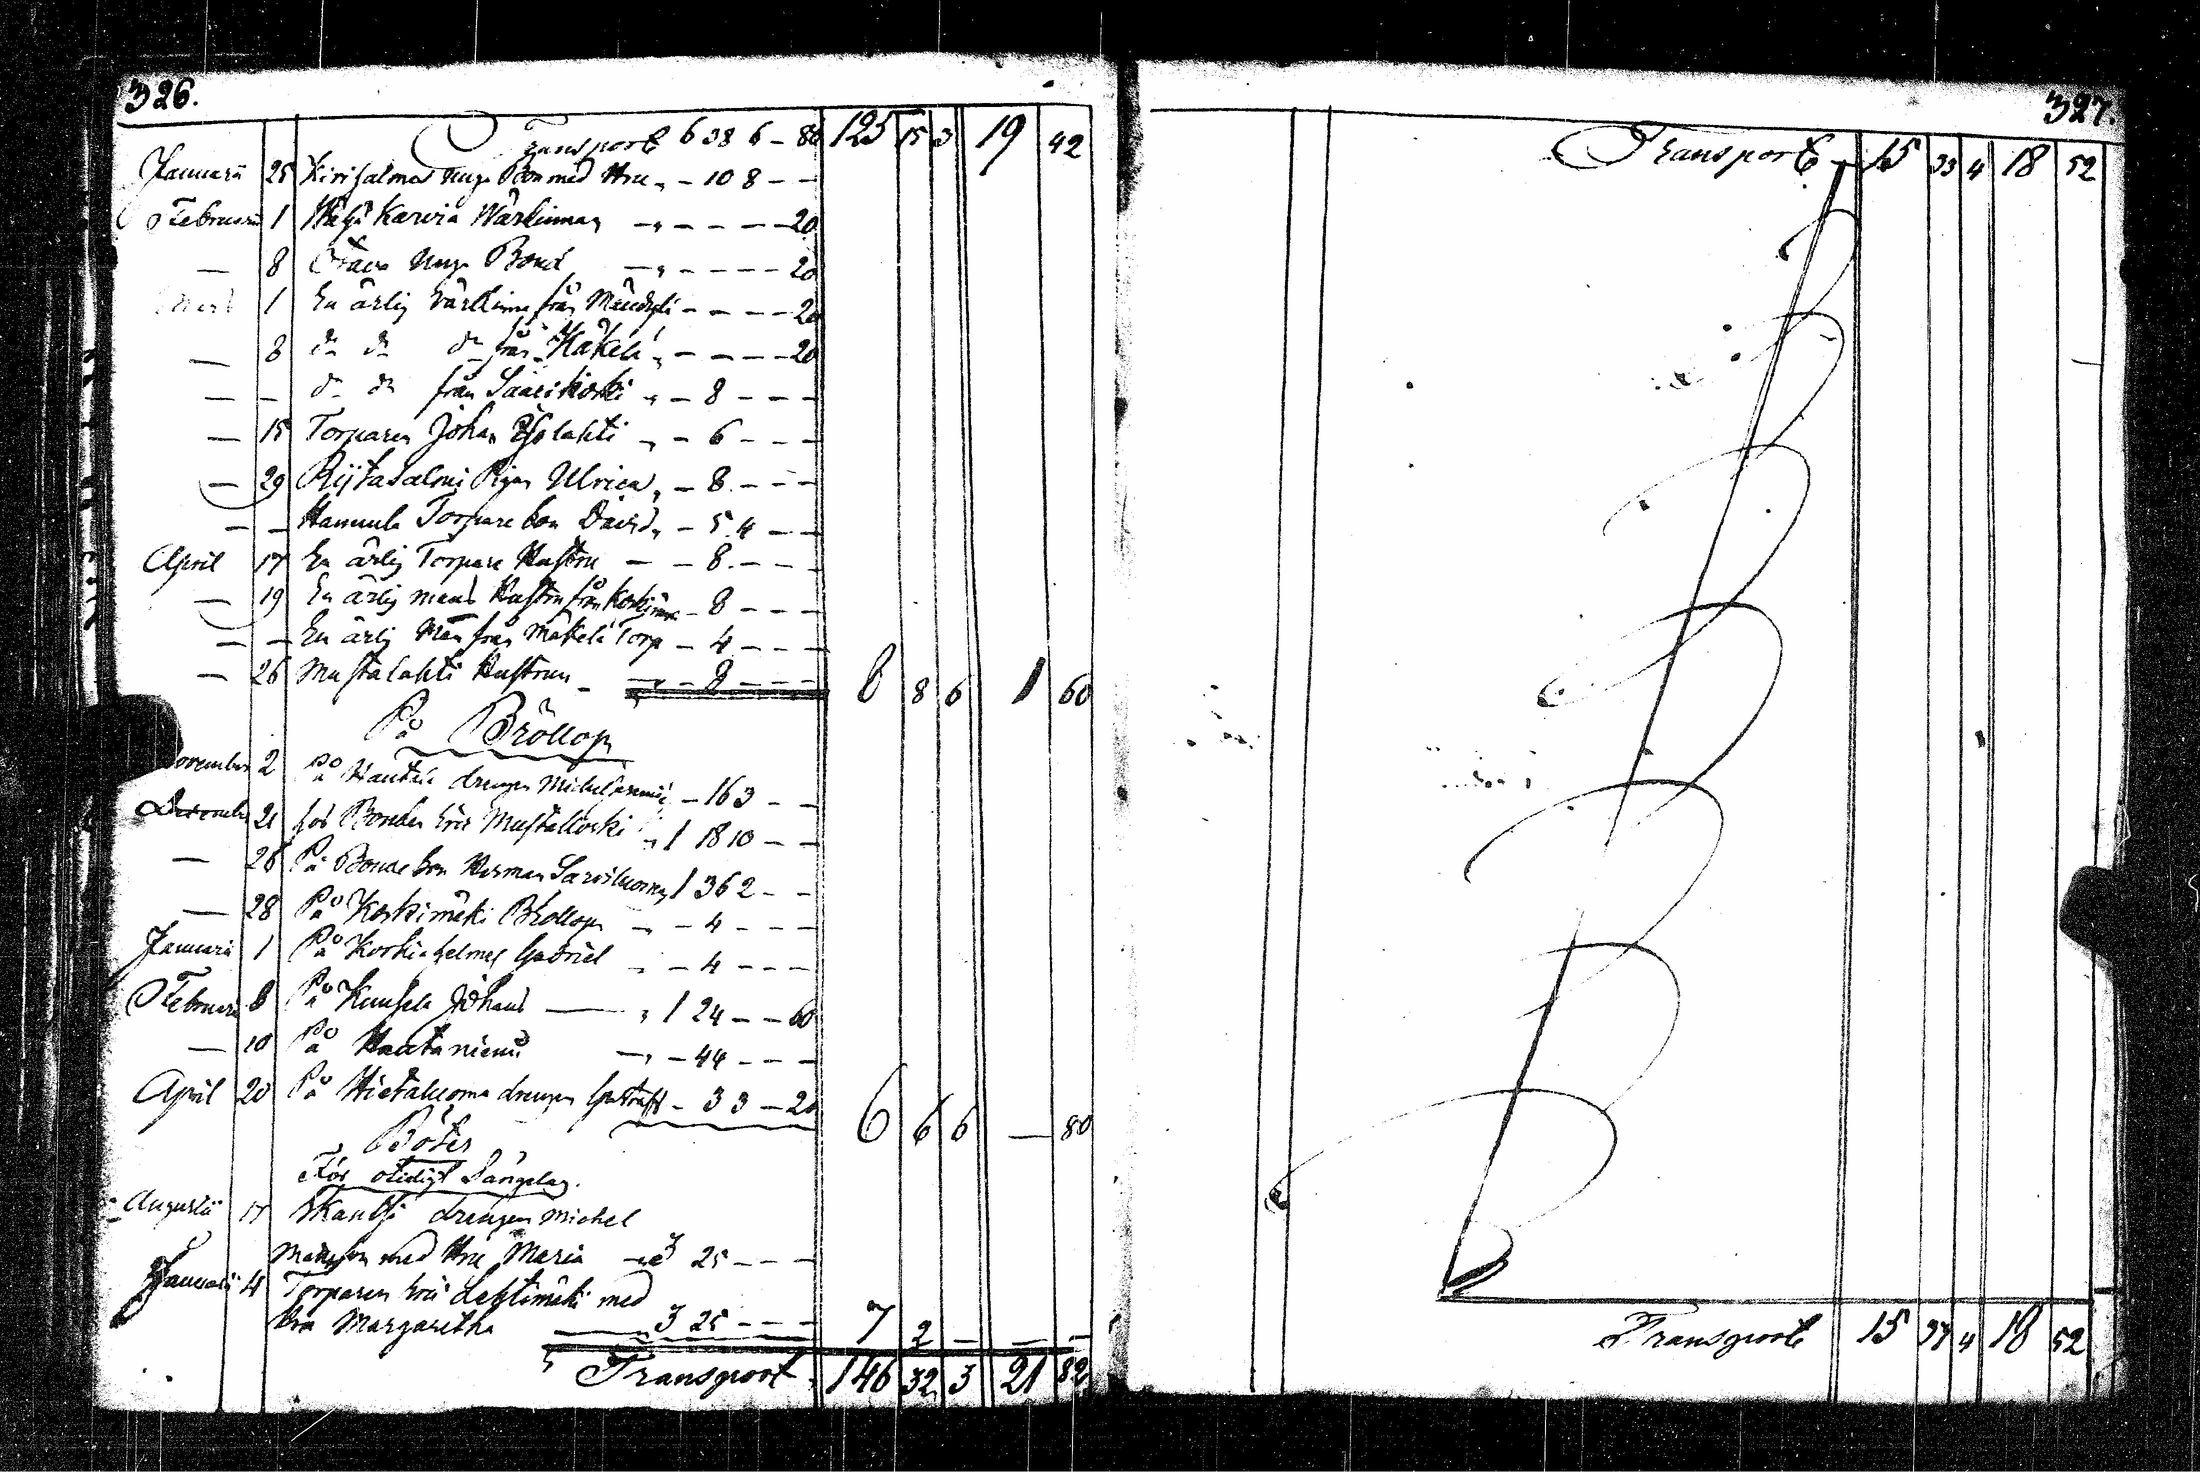 326.
Transport 6 38 6 - 80 125 15 3 19 42
Januarii 25 unga med Hru „ - 10 8 - -
Februarii 1 Karvia Wärdinnan „ - - - - 20
— 8 unga Bond „ - - - - 20
1 En ärlig värdinna från - - - - 20
— 8 dn dn dn från Häkelä „ - - - - 20
— — dn dn från Saarikoski „ - 8 - - -
— 15 Torparen Johan Isolahti „ - 6 - - -
— 29 Rijtasalmi Pigan Ulrica „ - 8 - - -
— — Hannula Torpare son David „ - 5 4 - -
April 17 En ärlig Torpare Hustru - - 8 - - -
— 19 En ärlig mans Hustru från - 8 - - -
— — En ärlig Man från Mäkelä Torp - 4 - - -
— 26 Mustalahti Hustrun - „ - 8 - - - 8 8 6 1 60
På Bröllop
November 2 På drengen Michel - 16 3 - -
December 21 hos Bonden Eric Mustakoski „ 1 18 10 - -
— 26 På Bonde son Herman 1 36 2 - -
— 28 På Koskimäki Bröllop „ - 4 - - -
Januarii 1 På Gabriel „ - 4 - - -
Februarii 8 På Kuusela Johans — „ 1 24 - - 60
— 10 På Hautaniemi „ - 44 - - -
April 20 På Hietaluoma drengen Gustaf - 3 3 - 20 6 6 6 — 80
Böter
För otidigt Sängelag.
Augustii 17 drengen Michel
med Hru Maria 3 25 - - -
Januarii 4 Torparen Eric Lehtimäki med
Hru Margaretha — 3 25 - - - 7 2 — — —
Transport 146 32 3 21 82
327.
Transport 15 33 4 18 52
Transport 15 37 4 18 52